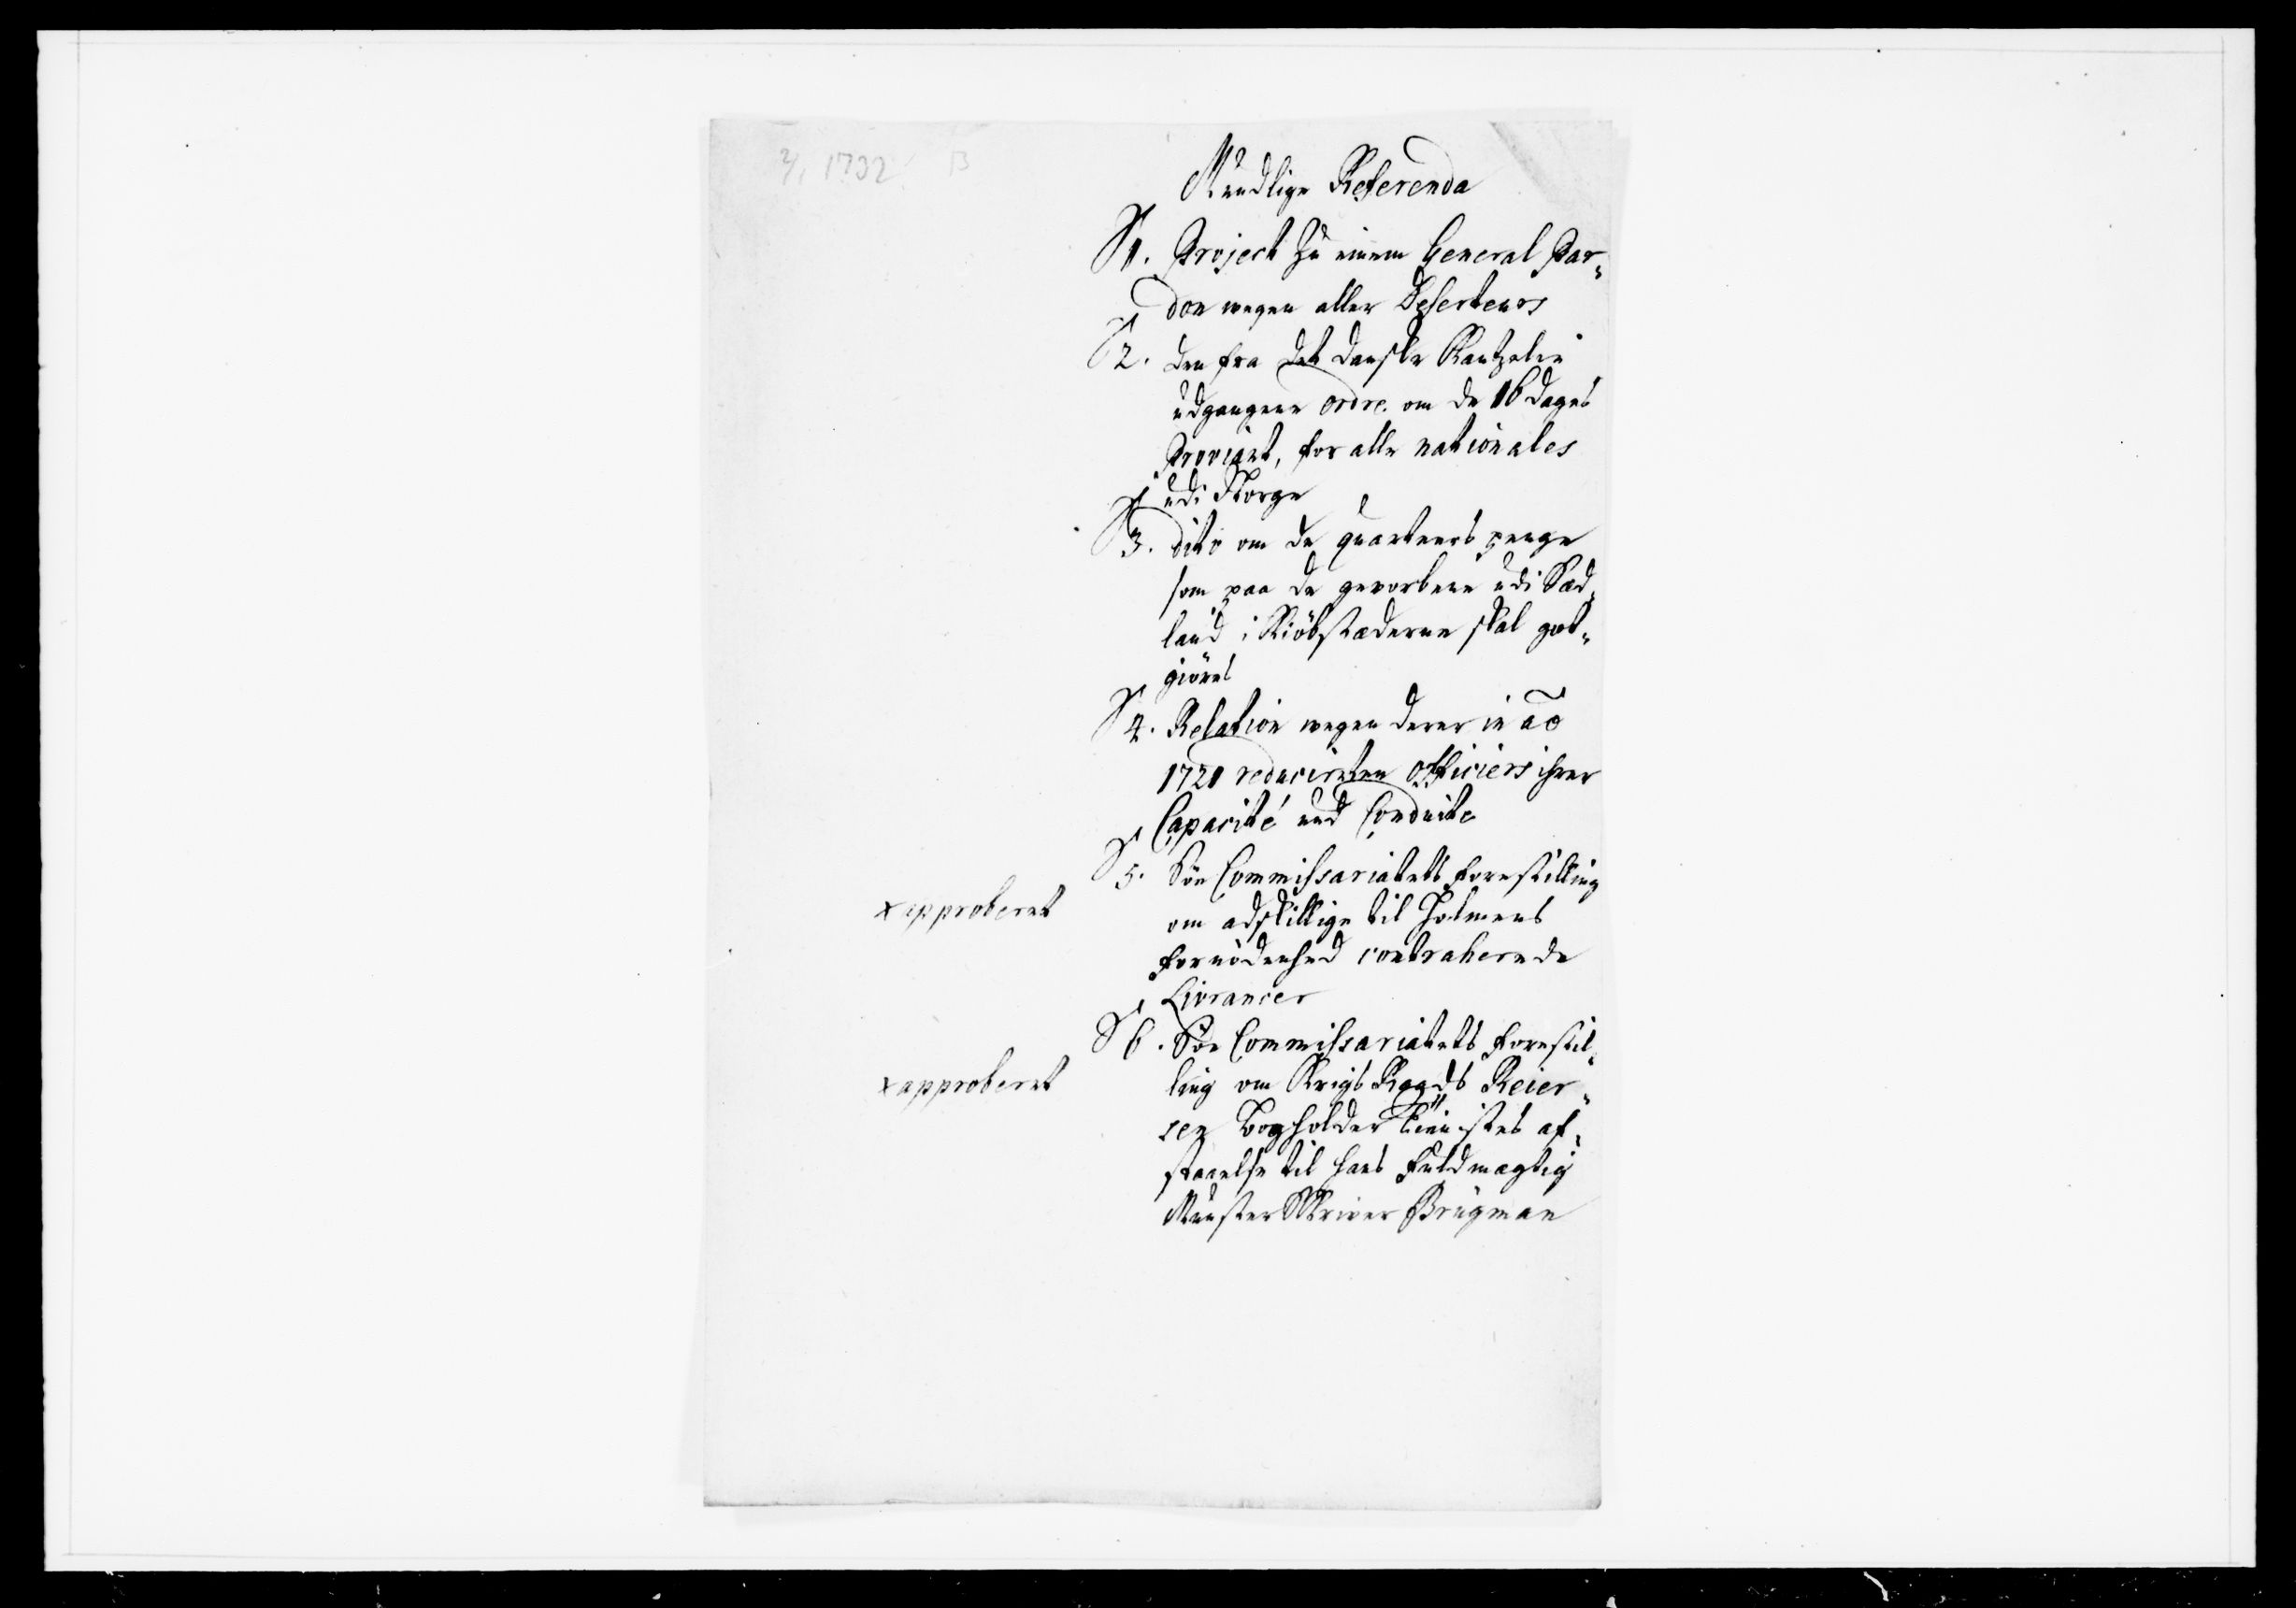 2/1 1732. B
Mundlige Referenda
1. Project zu einem General Par-
don wegen aller Deserteurs
2. den fra det danske Kantzelie
udgangne ordre om de 16 dages
Proviant, for alle nationales
udi Norge
3. dito om de quarteers penge
som paa de gevorbene udi Sæd-
land i Kiöbstæderne skal got-
giöres
4. Relation wegen derer in Ao
1721 reducirten officiers ihrer
Capacité und Conduite
5. Söe Commissariatets forestilling
xapproberet
om adskillige til Holmens
fornödenhed contraherede
Livrancer
6. Söe Commissariatets forestil-
xapproberet
ling om Krigs Raads Reier-
sen Bogholder tienistes af-
staaelse til hans fuldmægtig
Munster Skriver Brügman